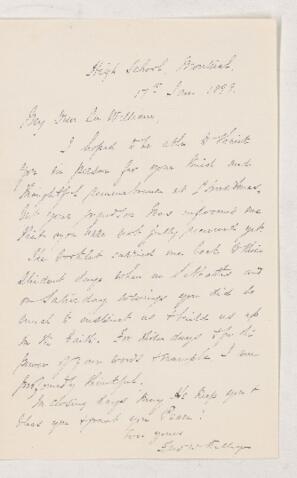 High School, Montreal.
17th Jan. 1899.
My Dear Sir William,
I hoped to be able to thank
you in person for your kind and
thoughtful remembrance at Christmas,
but your has informed me
that you are not fully recovered yet.
The booklet carried me back to those
student days when on Sabbaths and
on Saturday evenings you did so
much to instruct us & build us up
in the Faith. For those days & for the
power of your words & example I am
profoundly thankful.
In closing days may He keep you &
bless you & grant you Peace!
Ever yours